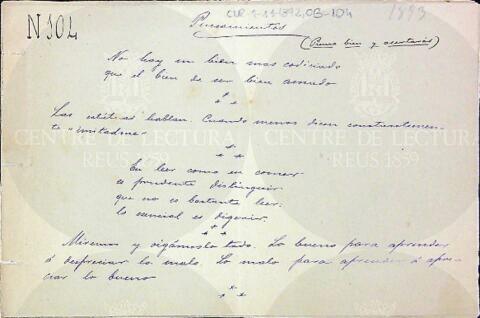 Nº 104
CLR-1-11-1892,08-104
1893
Pensamientos
(Piensa bien y acertarás)
No hay un bien mas codiciado
que el bien de ser bien amado
Las estátuas hablan. Cuando menos dicen constantemen-
te "imitadme"
En leer como en comer
es prudente distinguir
que no es bastante leer:
lo esencial es digerir
Miremos y oigámoslo todo. Lo bueno para aprender
á despreciar lo malo. Lo malo para aprender á apre-
ciar lo bueno
CENTRE DE LECTURA
REUS 1859
CENTRE DE LECTURA
REUS 1859